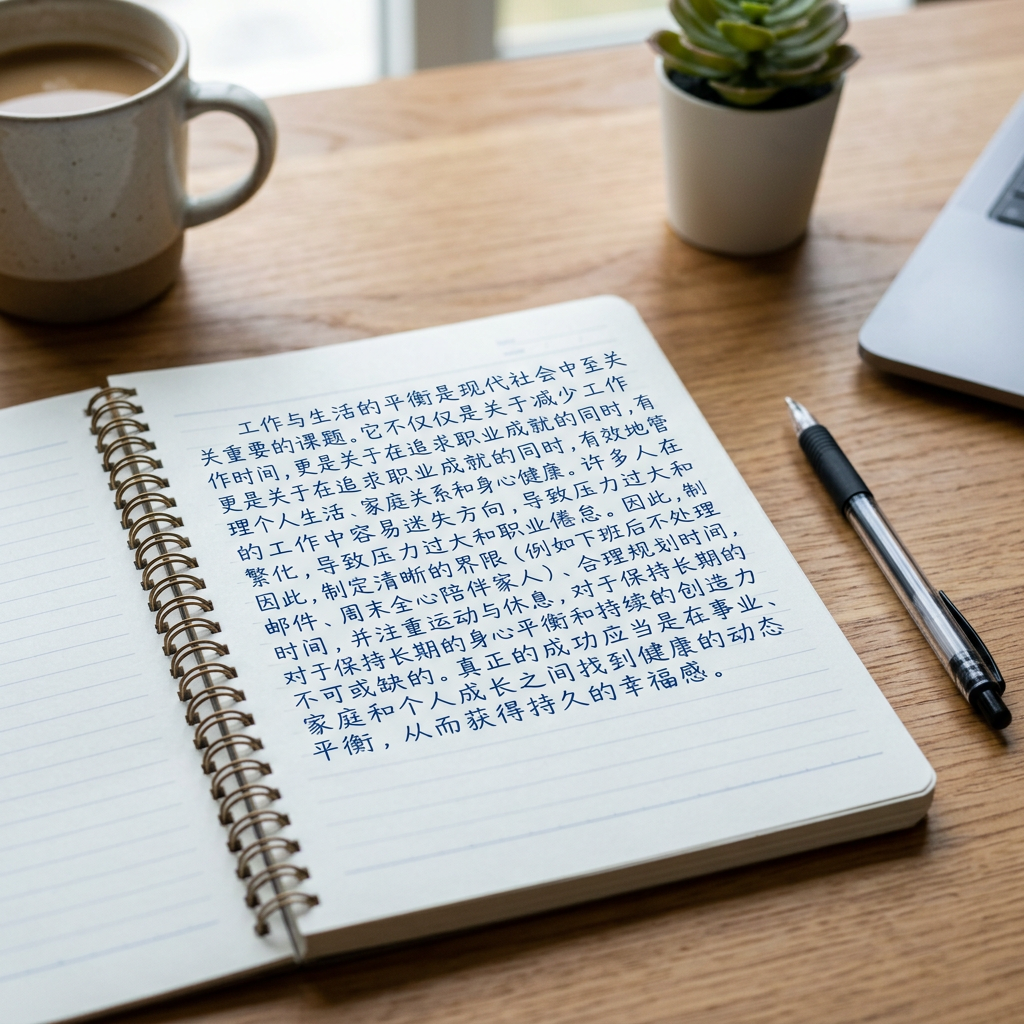 工作与生活的平衡是现代社会中至关
关重要的课题。它不仅仅是关于减少工作
作时间,更是关于在追求职业成就的同时,有
更是关于在追求职业成就的同时,有效地管
理个人生活、家庭关系和身心健康。许多人在
的工作中容易迷失方向,导致压力过大和
繁化,导致压力过大和职业倦怠。因此,制
因此,制定清晰的界限(例如下班后不处理
邮件、周末全心陪伴家人)、合理规划时间,
时间,并注重运动与休息,对于保持长期的
对于保持长期的身心平衡和持续的创造力
不可或缺的。真正的成功应当是在事业、
家庭和个人成长之间找到健康的动态
平衡,从而获得持久的幸福感。